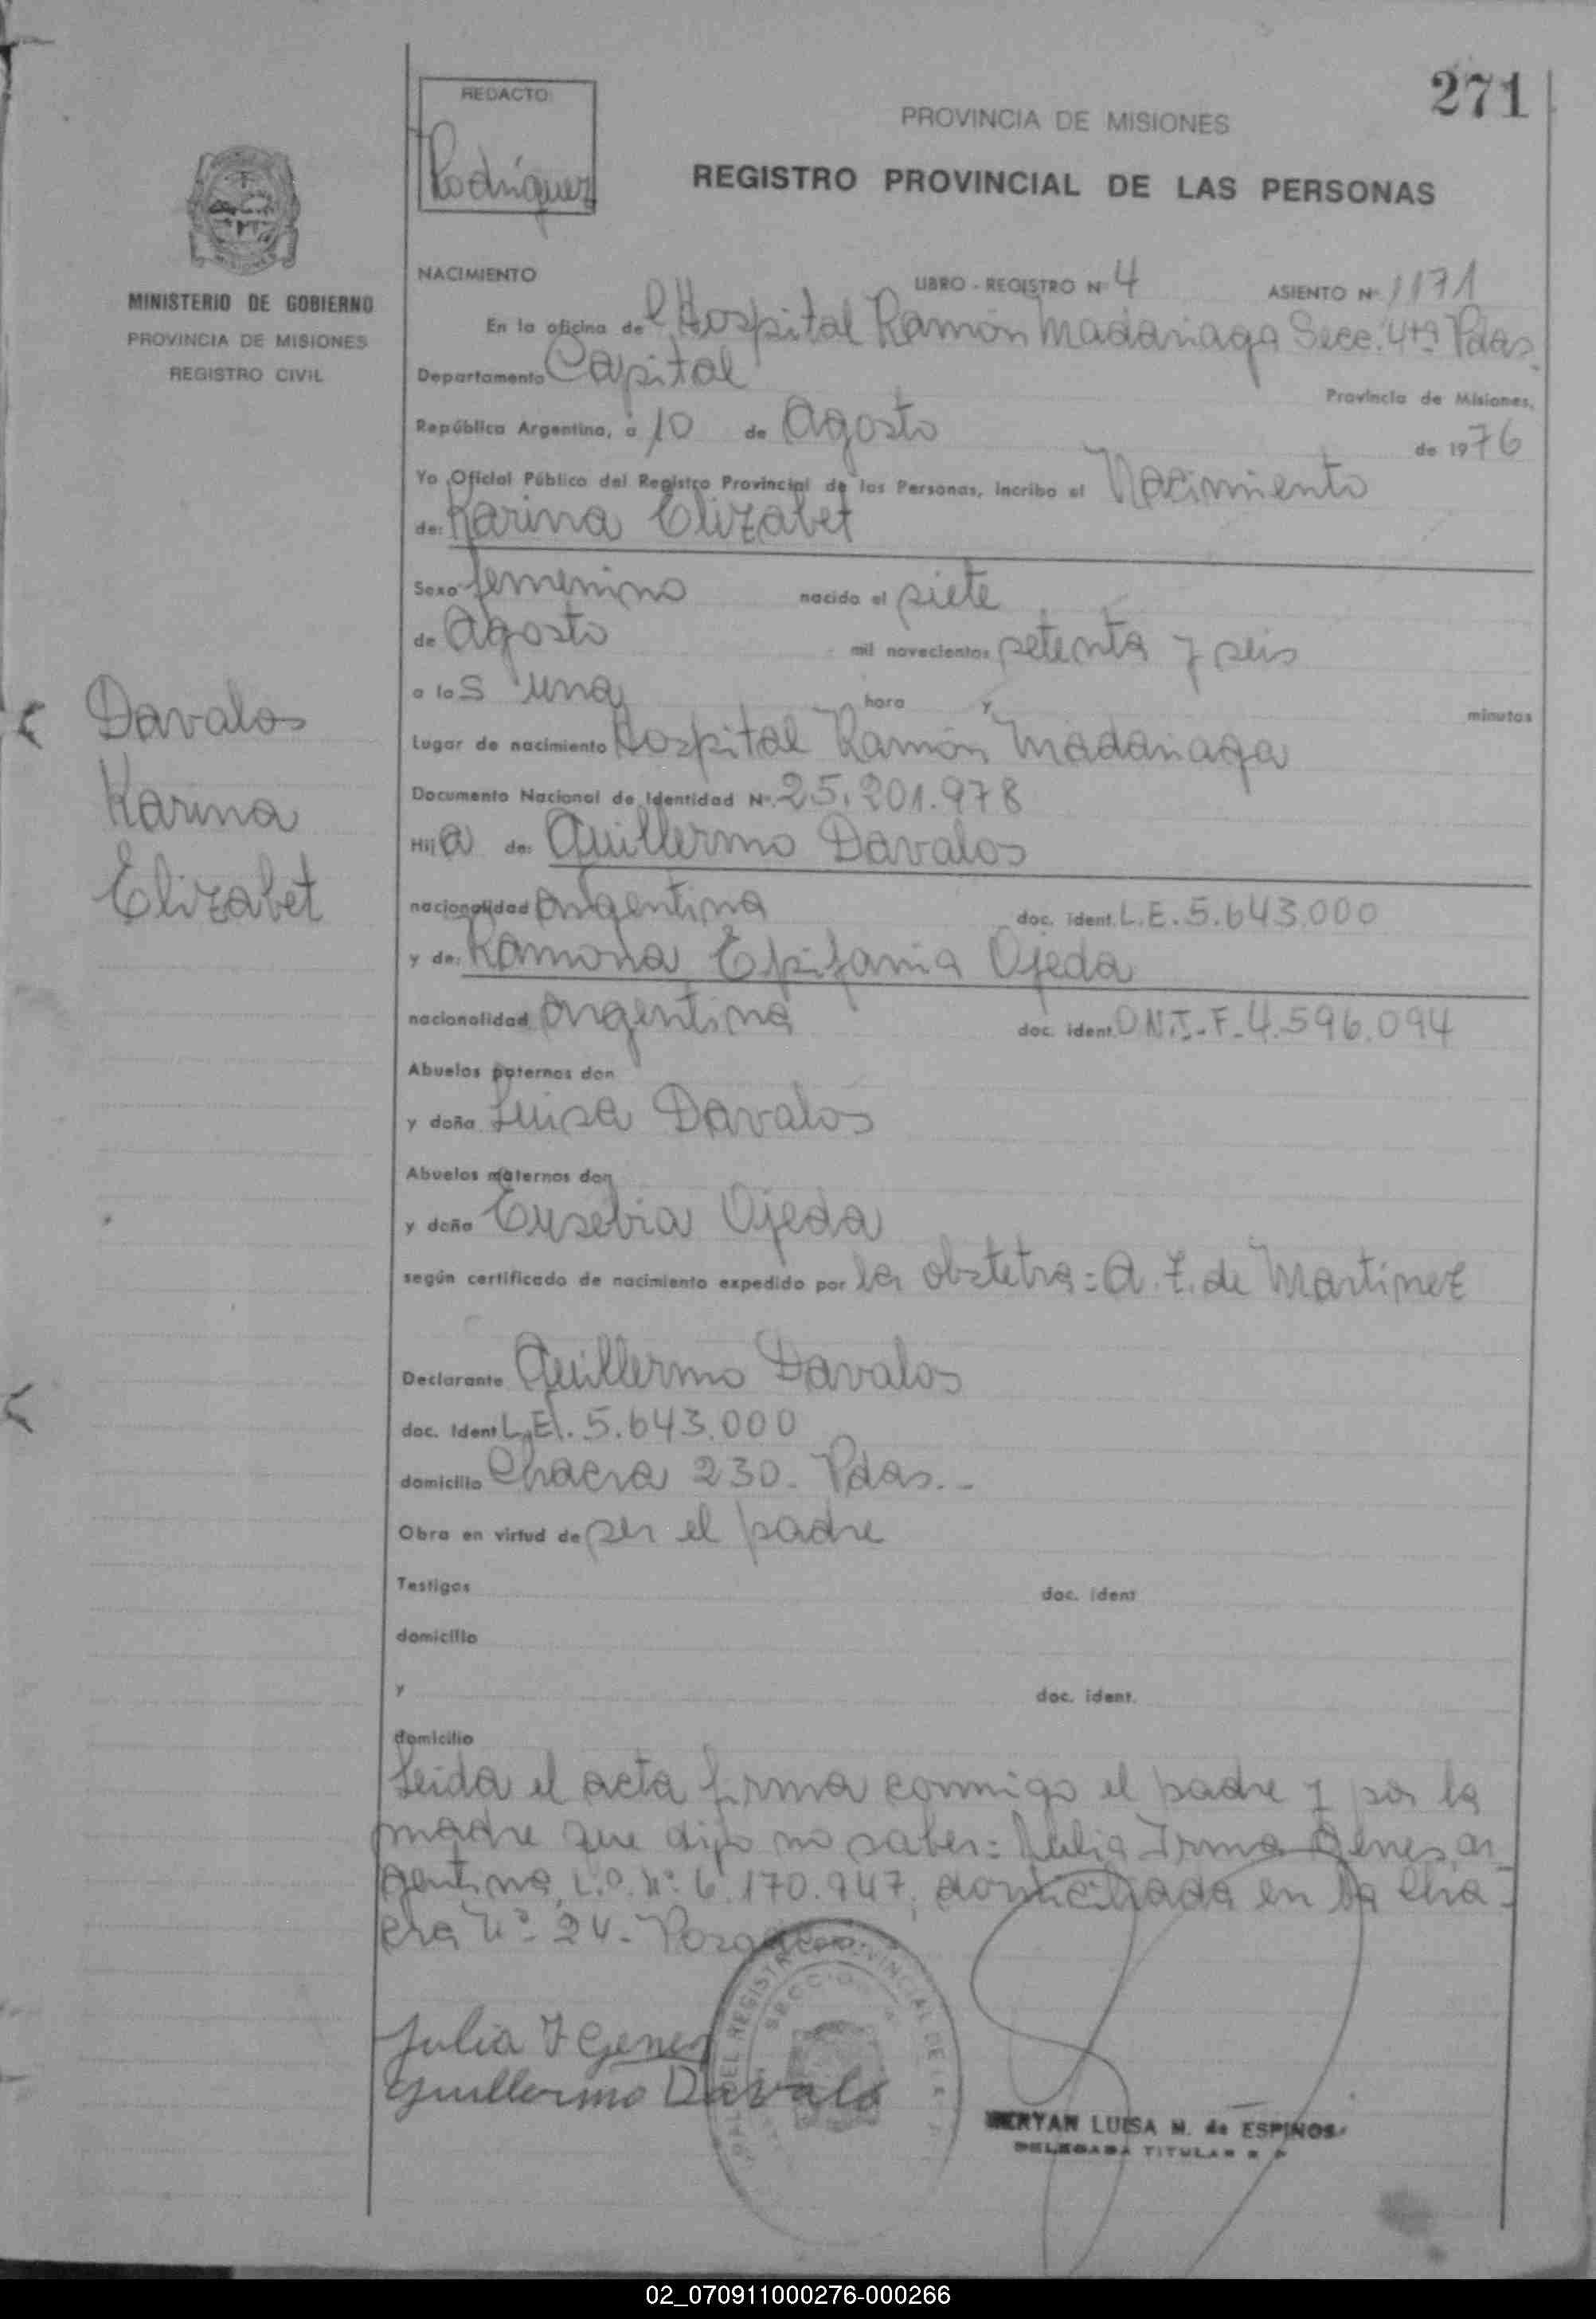 271
REDACTO:
Rodríguez
PROVINCIA DE MISIONES
REGISTRO PROVINCIAL DE LAS PERSONAS
MINISTERIO DE GOBIERNO
PROVINCIA DE MISIONES
REGISTRO CIVIL
NACIMIENTO LIBRO - REGISTRO Nº 4 ASIENTO Nº 1171
En la oficina del Hospital Ramón Madariaga Secc. 4ta Pdas.
Departamento Capital Provincia de Misiones,
República Argentina, a 10 de Agosto de 1976
Yo Oficial Público del Registro Provincial de las Personas, incribo el Nacimiento
de: Karina Elizabet
Sexo femenino nacido el siete
de Agosto mil novecientos setenta y seis
a las una hora y minutos
Lugar de nacimiento Hospital Ramón Madariaga
Documento Nacional de Identidad Nº 25.201.978
Hija de: Guillermo Davalos
nacionalidad argentina doc. ident. L.E. 5.643.000
y de: Ramona Epifania Ojeda
nacionalidad argentina doc. ident. DNI-F-4.596.094
Abuelos paternos don
y doña Luisa Davalos
Abuelos maternos don
y doña Eusebia Ojeda
según certificado de nacimiento expedido por la obstetra= A. Z. de Martinez
Declarante Guillermo Davalos
doc. Ident L.E. 5.643.000
domicilio Chacra 230. Pdas.-
Obra en virtud de ser el padre
Testigos doc. ident
domicilio
y doc. ident.
domicilio
Leida el acta firma conmigo el padre y por la
madre que dijo no saber= Julia Irma Genes, ar
gentina, L.C. Nº 6.170.947, domiciliada en la Cha-
cra Nº 24-
Davalos
Karina
Elizabet
Julia I Genes
Guillermo Davalo
DEL REGISTRO PROVINCIAL DE LAS
SECCION
LUISA M. de ESPINOS
DELEGADA TITULAR
02_070911000276-000266